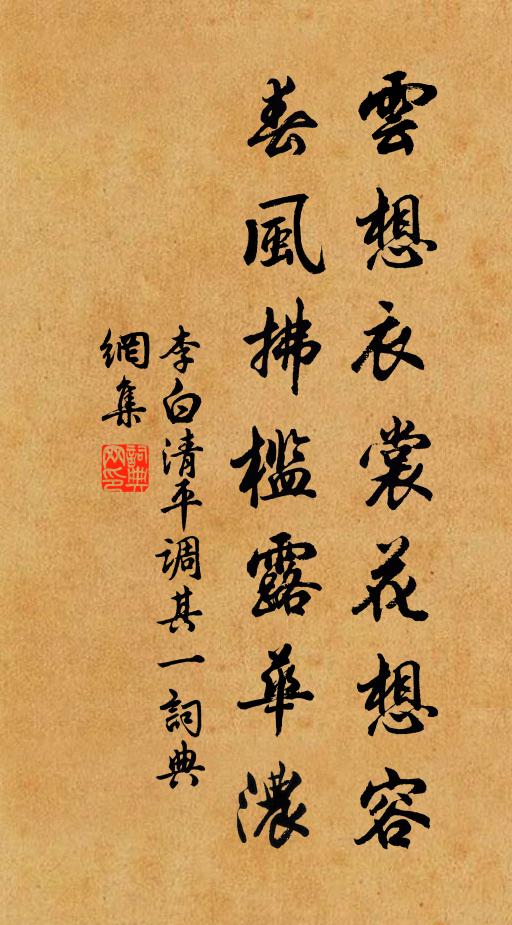 雲想衣裳花想容
春風拂檻露華濃
李白清平調其一詞典
網集
詞典
网印